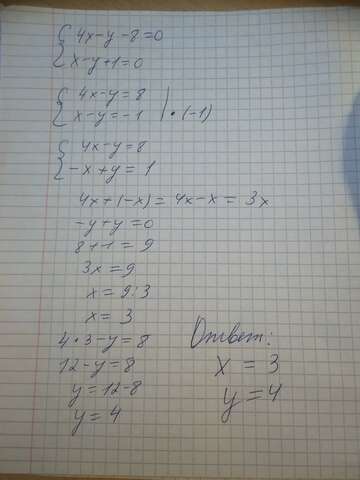 { 4x-y-8=0
{ x-y+1=0
{ 4x-y=8
{ x-y=-1 | •(-1)
{ 4x-y=8
{ -x+y=1
4x+(-x)=4x-x=3x
-y+y=0
8+1=9
3x=9
x=9:3
x=3
4•3-y=8
12-y=8
y=12-8
y=4
Ответ:
x=3
y=4